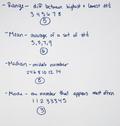 - Range - diff between highest + lowest std
3 4 5 6 7 8
5
- Mean - average of a set of std
3, 5, 7, 9
6
- Median - middle number
2 4 6 8 10 12 14
8
- Mode - the number that appears most often
1 1 2 3 3 3 4 5
3